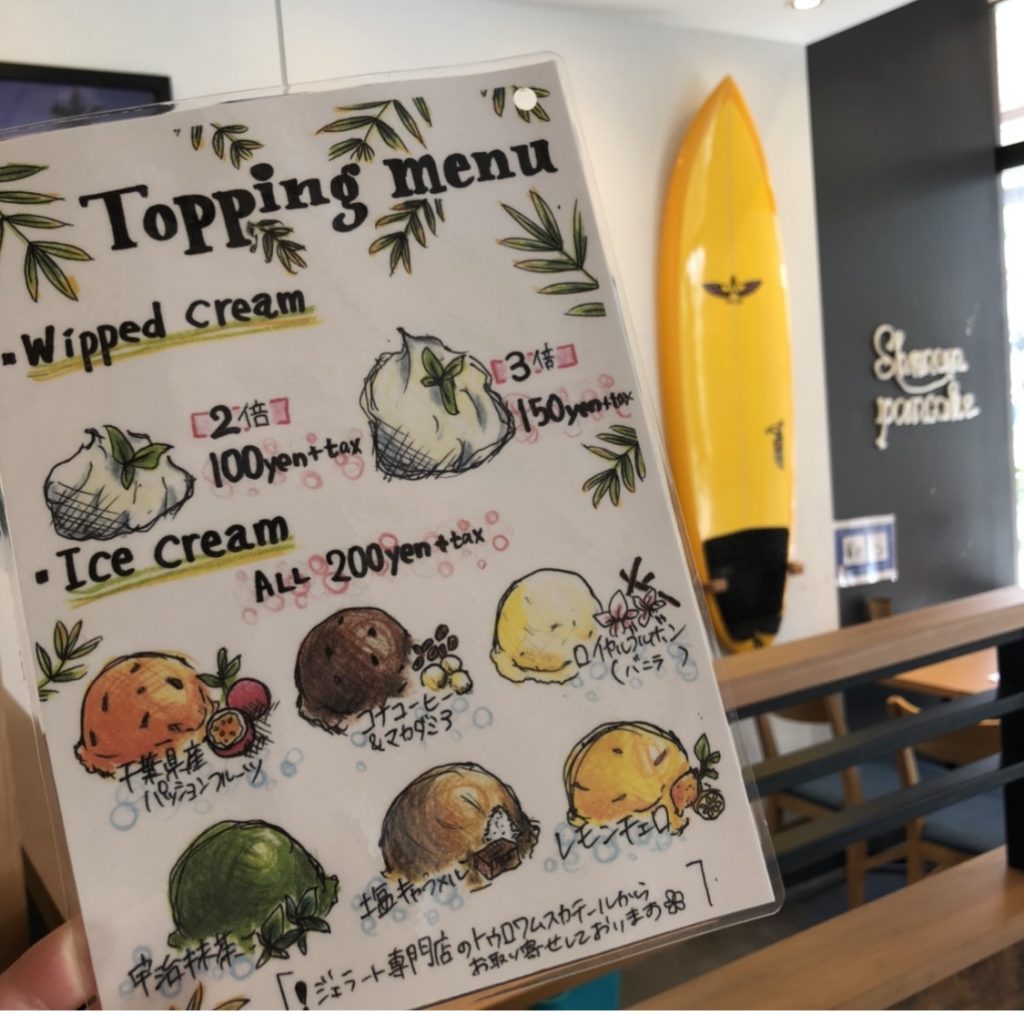 Topping menu
Wipped cream
2倍
100yen+tax
3倍
150yen+tax
Ice cream
ALL 200yen+tax
千葉県産
パッションフルーツ
コナコーヒー
&マカダミア
ロイヤルブルボン
(バニラ)
宇治抹茶
塩キャラメル
レモンチェロ
「!ジェラート専門店のトゥロワムスカテールから
お取り寄せしております」
pancake